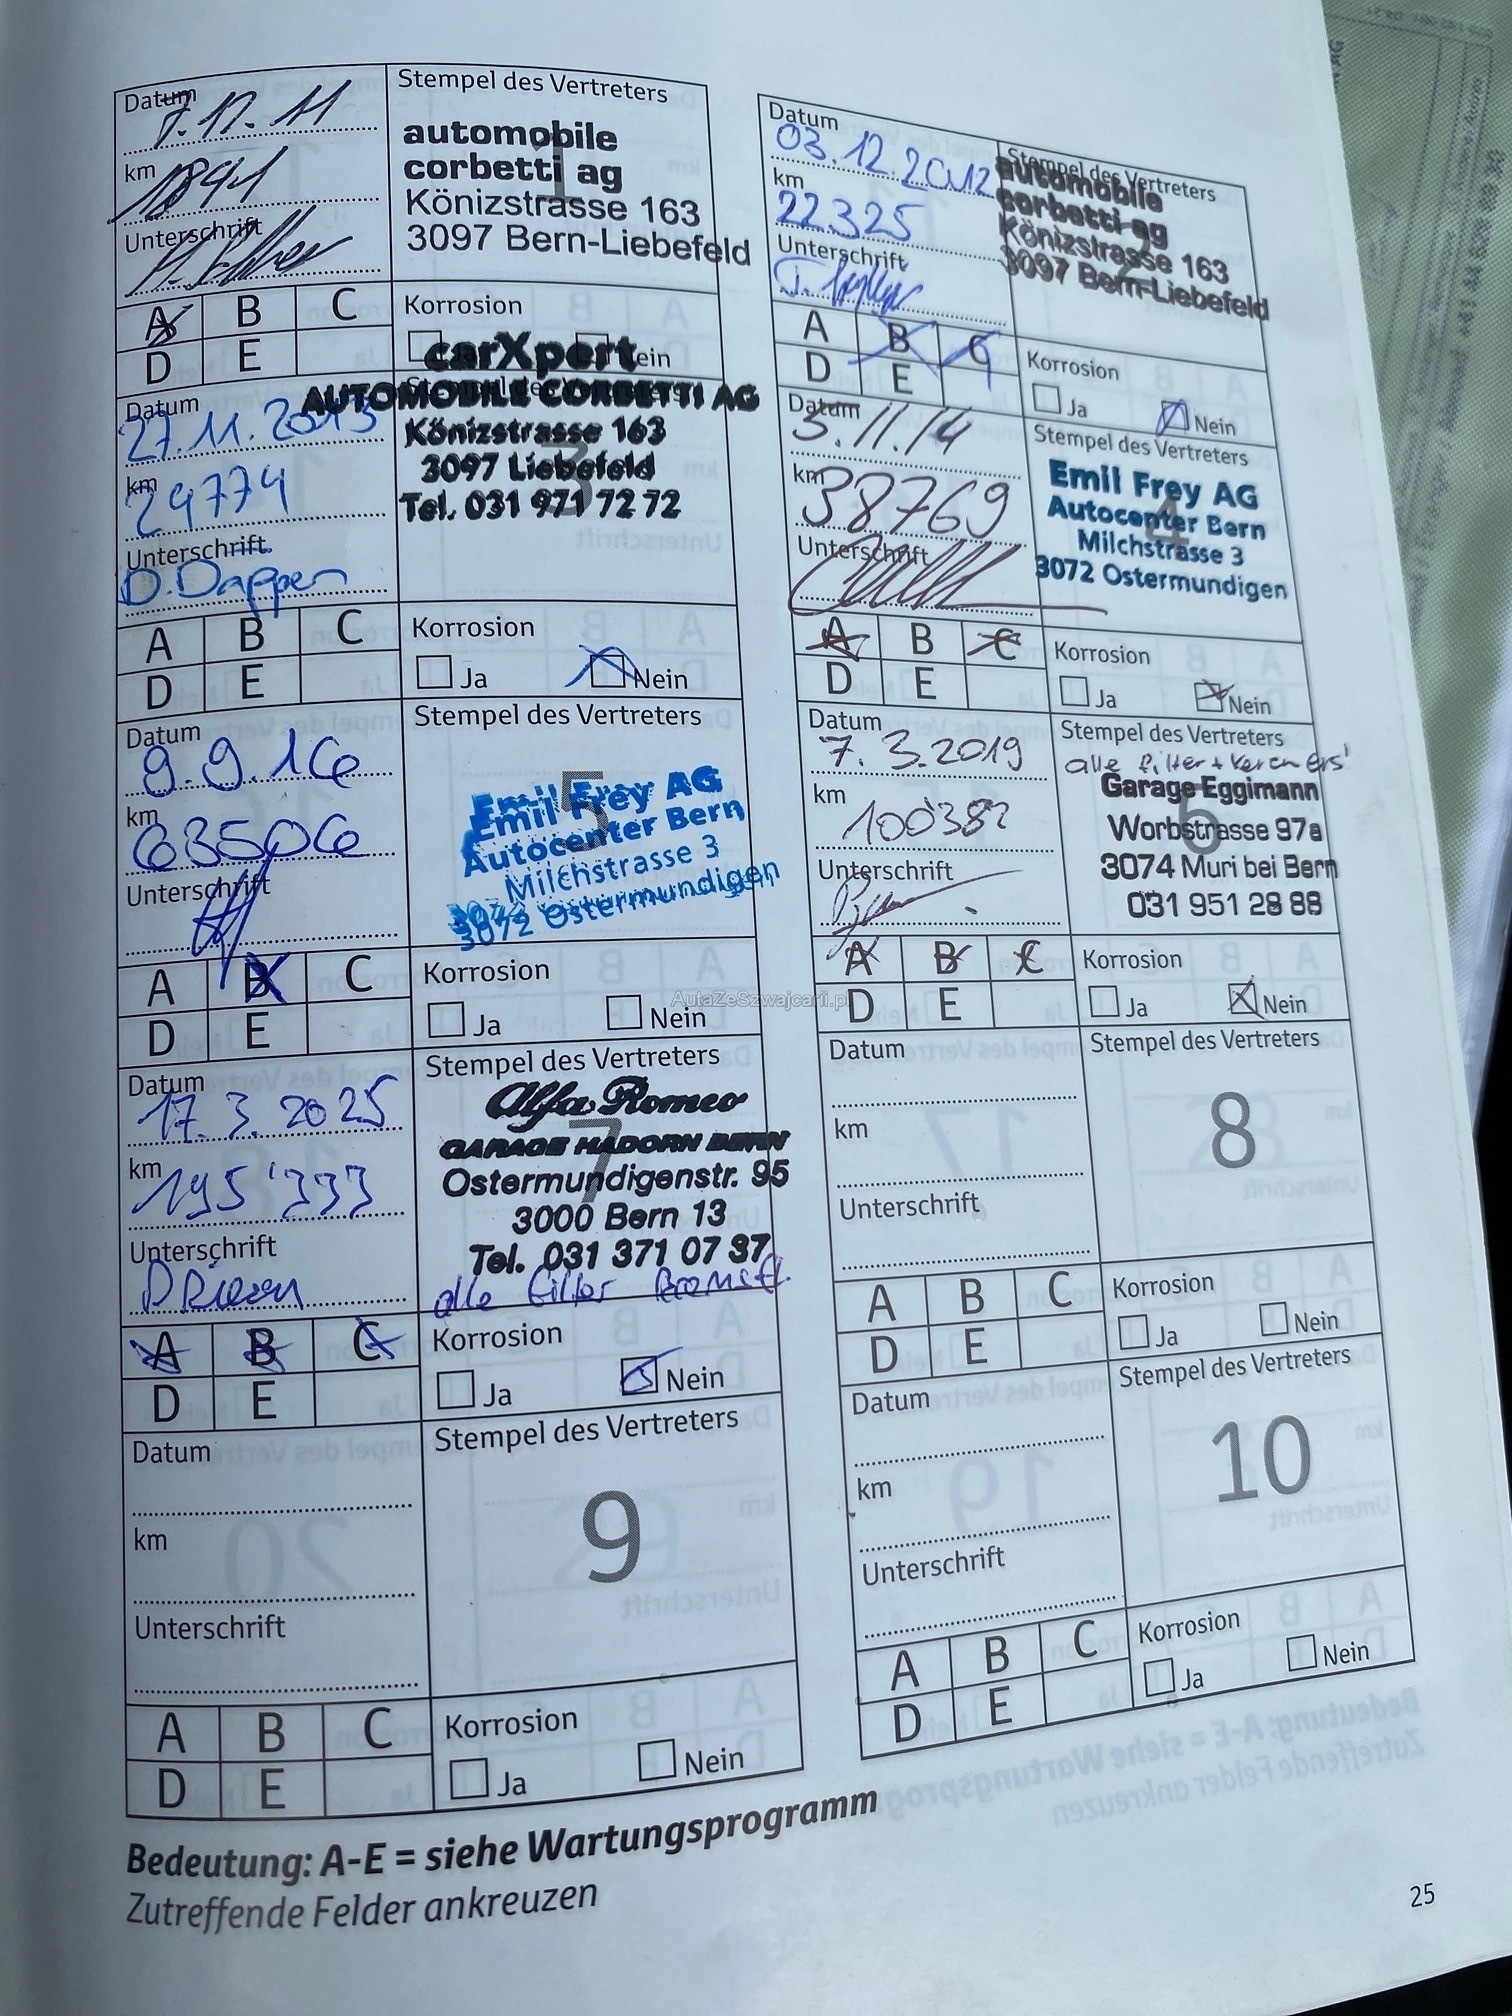 Datum
7.12.11
km
1841
Unterschrift
Stempel des Vertreters
1
automobile
corbetti ag
Könizstrasse 163
3097 Bern-Liebefeld
A B C
D E
Korrosion
Nein
Datum
03.12.2012
km
22325
Unterschrift
Stempel des Vertreters
2
automobile
corbetti ag
Könizstrasse 163
3097 Bern-Liebefeld
A B C
D E
Korrosion
Ja Nein
Datum
27.11.2013
km
29774
Unterschrift
D. Dappen
Stempel des Vertreters
3
carXpert
AUTOMOBILE CORBETTI AG
Könizstrasse 163
3097 Liebefeld
Tel. 031 971 72 72
A B C
D E
Korrosion
Ja Nein
Datum
5.11.14
km
38769
Unterschrift
Stempel des Vertreters
4
Emil Frey AG
Autocenter Bern
Milchstrasse 3
3072 Ostermundigen
A B C
D E
Korrosion
Ja Nein
Datum
9.9.16
km
63506
Unterschrift
Stempel des Vertreters
5
Emil Frey AG
Autocenter Bern
Milchstrasse 3
3072 Ostermundigen
A B C
D E
Korrosion
Ja Nein
Datum
7.3.2019
km
100382
Unterschrift
Stempel des Vertreters
alle Filter +
6
Garage Eggimann
Worbstrasse 97a
3074 Muri bei Bern
031 951 28 88
A B C
D E
Korrosion
Ja Nein
AutaZeSzwajcarii.pl
Datum
17.3.2025
km
195'333
Unterschrift
Stempel des Vertreters
7
Alfa Romeo
GARAGE HADORN BERN
Ostermundigenstr. 95
3000 Bern 13
Tel. 031 371 07 37
alle Filter Bremsfl.
A B C
D E
Korrosion
Ja Nein
Datum
km
Unterschrift
Stempel des Vertreters
8
A B C
D E
Korrosion
Ja Nein
Datum
km
Unterschrift
Stempel des Vertreters
9
A B C
D E
Korrosion
Ja Nein
Datum
km
Unterschrift
Stempel des Vertreters
10
A B C
D E
Korrosion
Ja Nein
Bedeutung: A-E = siehe Wartungsprogramm
Zutreffende Felder ankreuzen
25